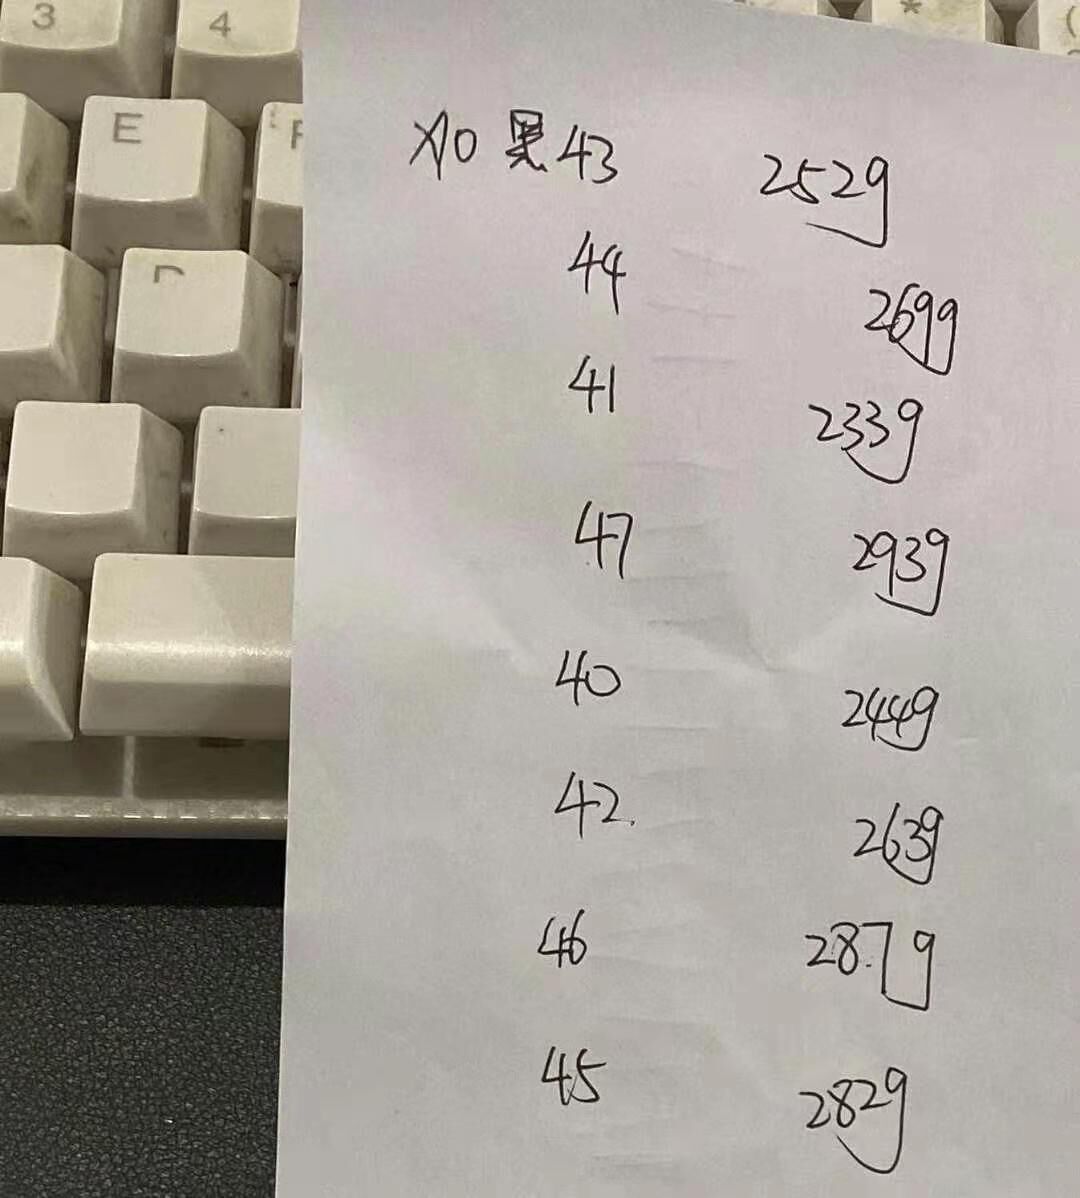 3 4 * (
E
X10 黑 43 252g
44 269g
41 233g
47 293g
40 244g
42 263g
46 287g
45 282g